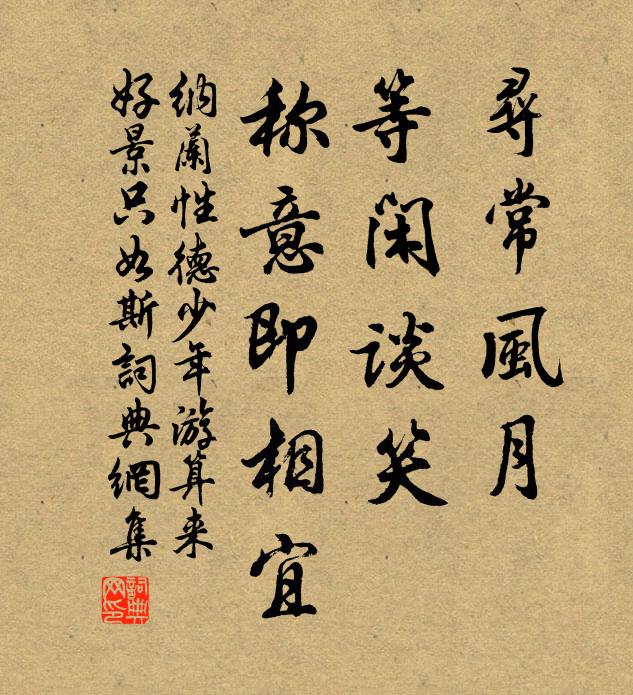 尋常風月
等閑談笑
称意即相宜
纳蘭性德少年游算来
好景只如斯詞典網集
詞典网印